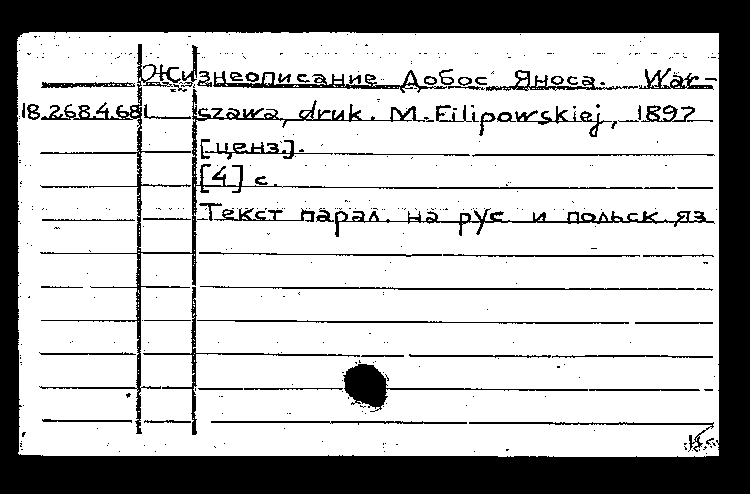 Жизнеописание Добос Яноса. War-
18.268.4.681 szawa, druk. M. Filipowskiej, 1897
[ценз.].
[4] с.
Текст парал. на рус. и польск яз